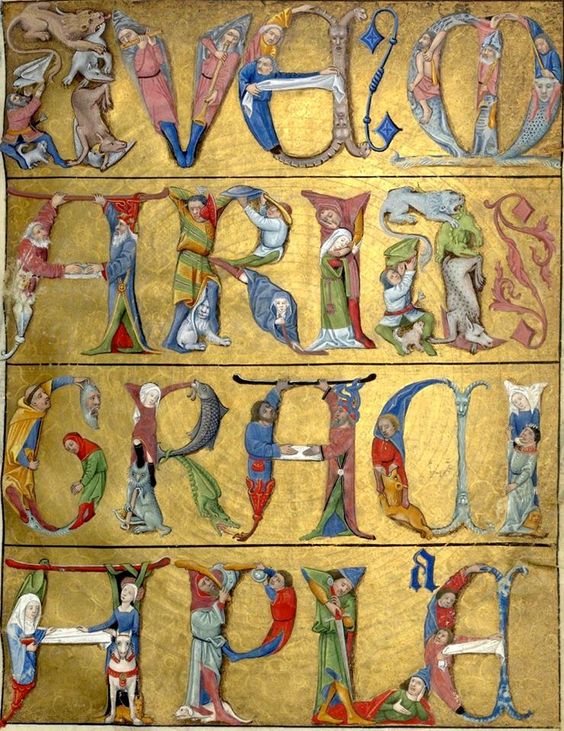 AVE M
ARIA
GRACI
a
A PLE